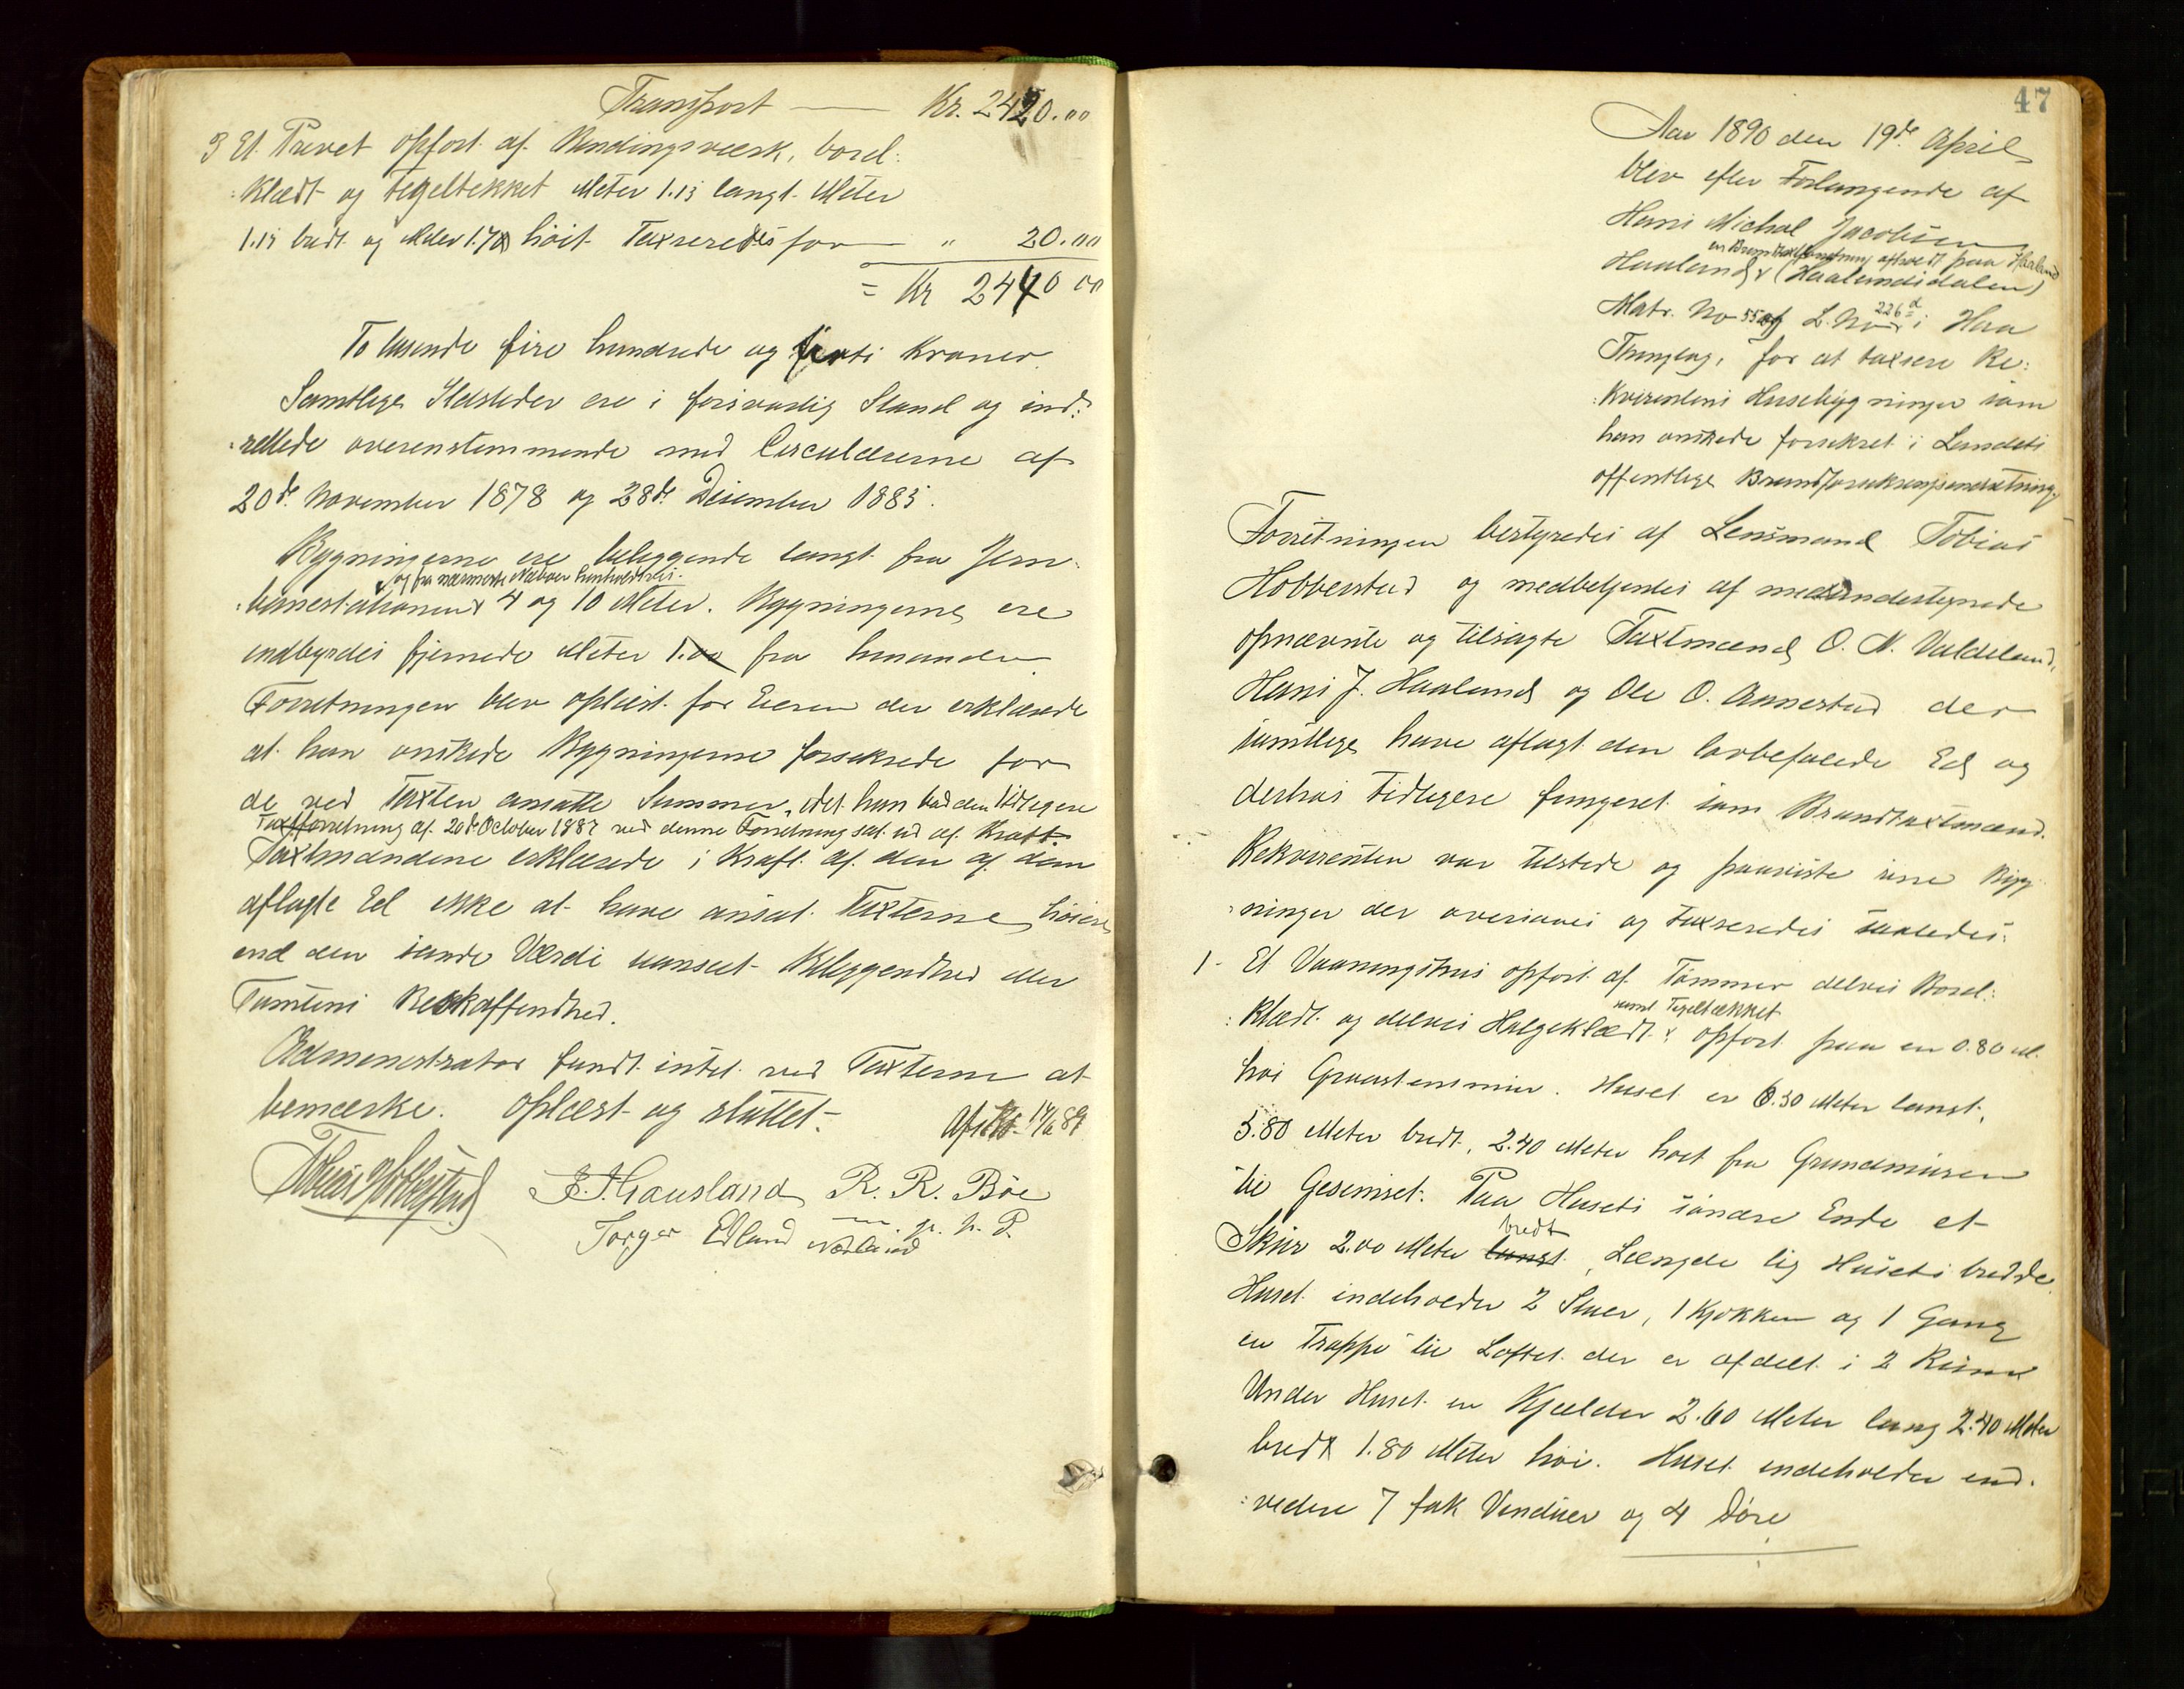 Transport — Kr. 2420.00
3 Et Privet opført af Bindingsværk, bord:
:klædt og tegeltekket Meter 1.13 langt Meter
1.13 bredt og Meter 1.70 höit Taxseredes for — " 20.00
= Kr 2440 00
To tusende fire hundrede og firti Kroner.
Samtlige Ildsteder ere i forsvarlig Stand og ind:
:rettede overenstemmende med Circulærerne af
20de November 1878 og 28de Desember 1885.
Bygningerne ere beliggende langt fra Jern:
og fra nærmeste Naboer henholdsvis
:banestationen 4 og 10 Meter. Bygningerne ere
indbyrdes fjernede Meter 1.00 fra hinanden
Forretningen blev oplæst for Eieren der erklærede
at han ønskede Bygningerne forsikrede for
de ved Taxten ansatte Summer, idet han bad den tidligere
Taxtforretning af 20de October 1887 ved denne Forretning sat ud af Kraft.
Taxtmændene erklærede i Kraft af den af dem
aflagte Ed ikke at have ansat Taxterne höiere
end den sande Værdi uanseet Beliggenhed eller
Tomtens Beskaffendhed.
Administrator fandt intet ved Taxterne at
bemærke. Oplæst og sluttet.
Afskr. 17/6 89
Tobias Hobberstad J. J. Gausland R. R. Böe
Torger Edland Nærland m. p. P.
47
Aar 1890 den 19de April
blev efter Forlangende af
Hans Michal Jacobsen
en Brandtaxtforretning afholdt paa Haaland
Haaland (Haalandsdalen)
Matr. No 55 af L. No 226 d i Haa
Thinglag, for at taxsere Re:
:kvirentens Husebygninger som
han ønskede forsikret i Landets
offentlige Brandforsikringsindretning.
Forretningen bestyredes af Lensmand Tobias
Hobberstad og medbetjendes af medundertegnede
opnævnte og tilsagte Taxtmænd O. N. Valdeland,
Hans J. Haaland og Ole O. Aanestad der
samtlige have aflagt den lovbefalede Ed og
derhos tidligere fungeret som Brandtaxtmænd.
Rekvirenten var tilstede og paaviste sine Byg
:ninger der overSaaes og taxseredes saaledes:
1- Et Vaaningshus opført af Tömmer delvis Bord:
samt Tegeltækket
:klædt og delvis Helgeklædt opført paa en 0.80 M.
höi Graastensmur. Huset er 6.30 Meter langt,
5.80 Meter bredt, 2.40 Meter höit fra Grundmuren
til Gesimset. Paa Husets söndre Ende et
bredt
Skur 2.00 Meter langt, Længde lig Husets bredde
Huset indeholder 2 Stuer, 1 Kjøkken og 1 Gang
en Trappe til Loftet der er afdelt i 2 Rum
Under Huset en Kjælder 2.60 Meter lang 2.40 Meter
bredt 1.80 Meter höi. Huset indeholder end:
:videre 7 fak Vinduer og 4 Döre